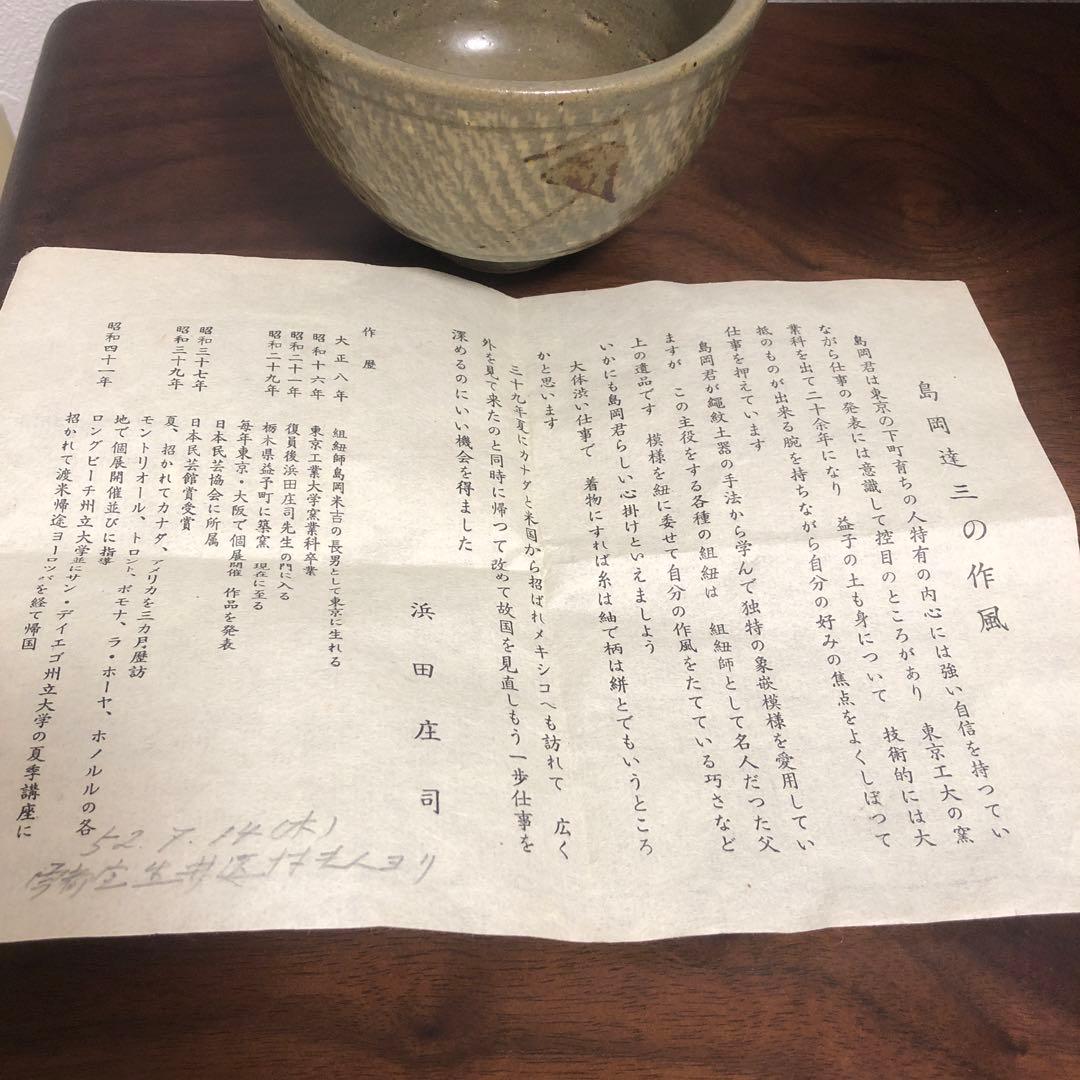 島岡達三の作風
島岡君は東京の下町育ちの人特有の内心には強い自信を持つてい
ながら仕事の発表には意識して控目のところがあり 東京工大の窯
業科を出て二十余年になり 益子の土も身について 技術的には大
抵のものが出来る腕を持ちながら自分の好みの焦点をよくしぼつて
仕事を押えています
島岡君が縄紋土器の手法から学んで独特の象嵌模様を愛用してい
ますが この主役をする各種の組紐は 組紐師として名人だつた父
上の遺品です 模様を紐に委せて自分の作風をたてている巧さなど
いかにも島岡君らしい心掛けといえましよう
大体渋い仕事で 着物にすれば糸は紬で柄は絣とでもいうところ
かと思います
三十九年夏にカナダと米国から招ばれメキシコへも訪れて 広く
外を見て来たのと同時に帰つて改めて故国を見直しもう一歩仕事を
深めるのにいい機会を得ました
浜田庄司
作歴
大正八年 組紐師島岡米吉の長男として東京に生れる
昭和十六年 東京工業大学窯業科卒業
昭和二十一年 復員後浜田庄司先生の門に入る
昭和二十九年 栃木県益子町に築窯 現在に至る
毎年東京・大阪で個展開催 作品を発表
日本民芸協会に所属
昭和三十七年 日本民芸館賞受賞
昭和三十九年 夏、招かれてカナダ、アメリカを三カ月歴訪
モントリオール、トロント、ポモナ、ラ・ホーヤ、ホノルルの各
地で個展開催並びに指導
昭和四十一年 ロングビーチ州立大学並にサン・デイエゴ州立大学の夏季講座に
招かれて渡米帰途ヨーロッパを経て帰国
52.7.14(木)